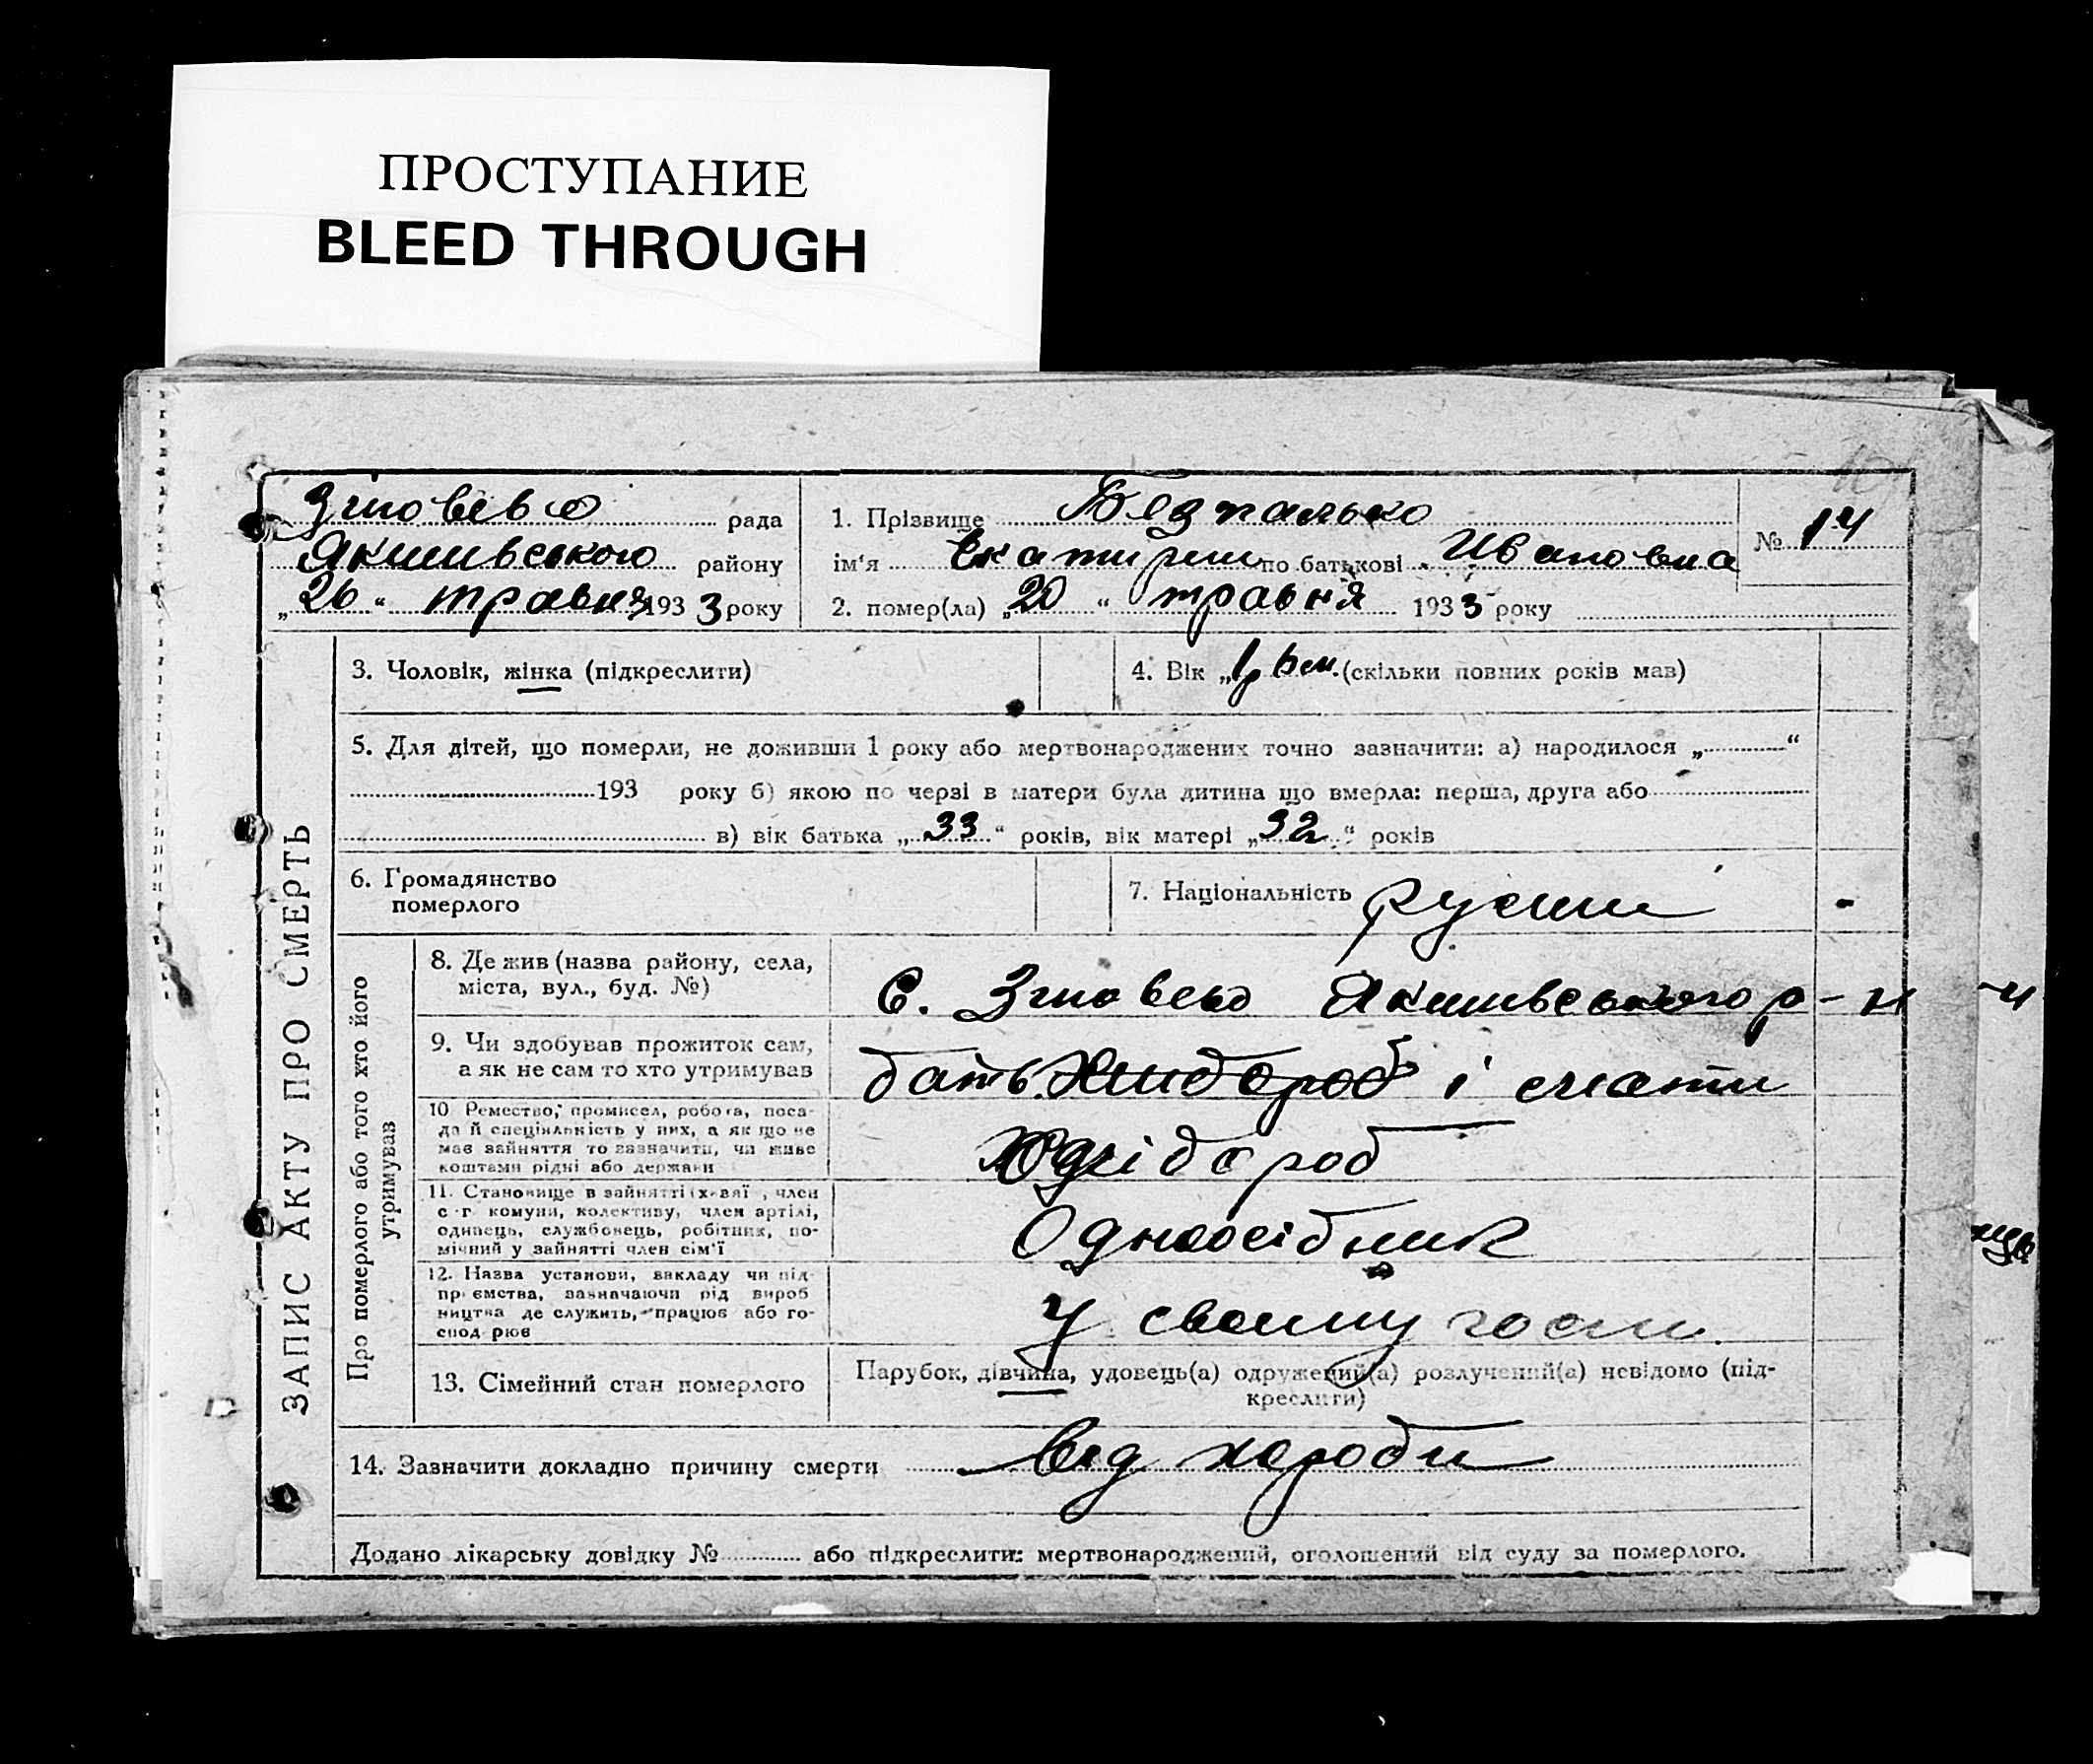 ПРОСТУПАНИЕ
BLEED THROUGH
рада
Якимівського району
„26“ травня 1933 року
1. Прізвище Безпалько
ім‘я по батькові Ивановна
2. помер(ла) „20“ травня 1933 року
№ 14
ЗАПИС АКТУ ПРО СМЕРТЬ
3. Чоловік, жінка (підкреслити)
4. Вік „1р 6м. (скільки повних років мав)
5. Для дітей, що померли, не доживши 1 року або мертвонароджених точно зазначити: а) народилося „ “
193 року б) якою по черзі в матери була дитина що вмерла: перша, друга або
в) вік батька „33“ років, вік матері „32“ років
6. Громадянство
померлого
7. Національність
Про померлого або того хто його
утримував
8. Де жив (назва району, села,
міста, вул., буд. №)
С. Якимівського р-н
9. Чи здобував прожиток сам,
а як не сам то хто утримував
бать і мати
10 Ремество, промисел, робота, поса-
да й спеціяльність у них, а як що не
має зайняття то зазначити, чи живе
коштами рідні або держави
Хлібороб
11. Становище в зайнятті (х-вяї , член
с-г комуни, колективу, член артілі,
одинець, службовець, робітник, по-
мічний у зайнятті член сім‘ї
Одноосібник
12. Назва установи, закладу чи під-
приємства, зазначаючи рід вироб
ництва де служить, працює або го-
спод рює
У своему госп.
13. Сімейний стан померлого
Парубок, дівчина, удовець(а) одружений(а) розлучений(а) невідомо (під-
креслити)
14. Зазначити докладно причину смерти від хороби
Додано лікарську довідку № або підкреслити: мертвонароджений, оголошений від суду за померлого.